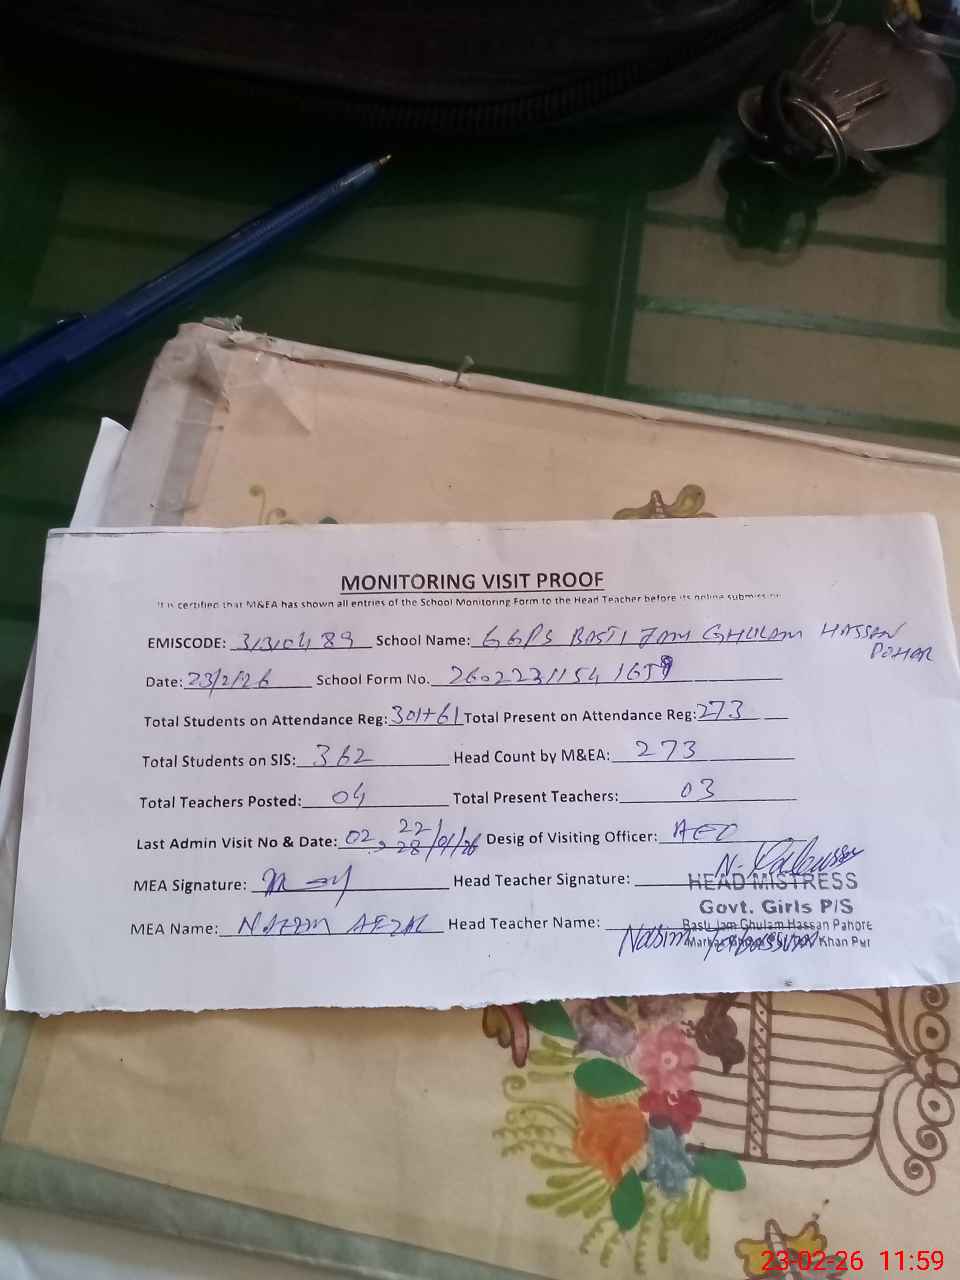 MONITORING VISIT PROOF
It is certified that M&EA has shown all entries of the School Monitoring Form to the Head Teacher before its online submission
EMISCODE: 31310489 School Name: GGPS BASTI JAM GHULAM HASSAN
POHAR
Date: 23/2/26 School Form No. 2602231154 1659
Total Students on Attendance Reg: 301+61 Total Present on Attendance Reg: 273
Total Students on SIS: 362 Head Count by M&EA: 273
Total Teachers Posted: 04 Total Present Teachers: 03
Last Admin Visit No & Date: 02, 22/ 28/01/26 Desig of Visiting Officer: AEO
MEA Signature: Head Teacher Signature:
HEAD MISTRESS
Govt. Girls P/S
MEA Name: Head Teacher Name: Basti Jam Ghulam Hassan Pahore
Nasim Khan Pur
23-02-26 11:59